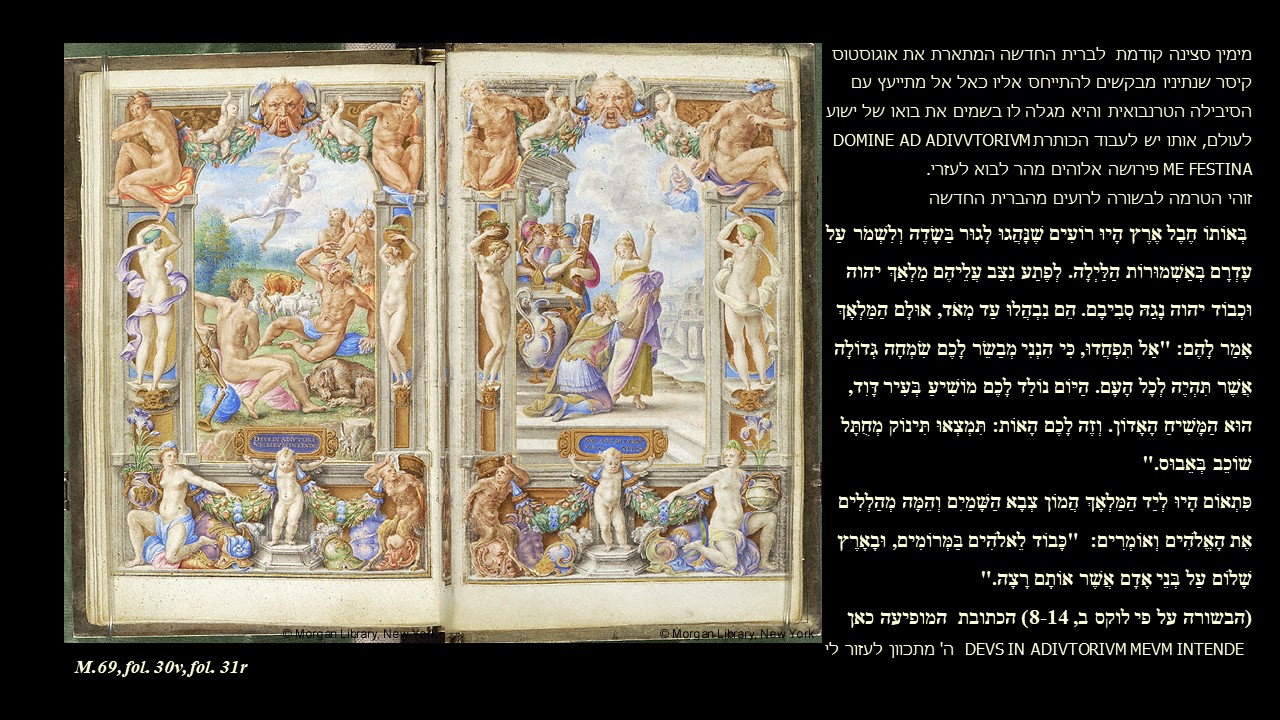 מימין סצינה קודמת לברית החדשה המתארת את אוגוסטוס
קיסר שנתיניו מבקשים להתייחס אליו כאל אל מתייעץ עם
הסיבילה הטרנבואית והיא מגלה לו בשמים את בואו של ישוע
לעולם, אותו יש לעבוד הכותרת DOMINE AD ADIVVTORIVM
ME FESTINA פירושה אלוהים מהר לבוא לעזרי.
זוהי הטרמה לבשורה לרועים מהברית החדשה
בְּאוֹתוֹ חֶבֶל אֶרֶץ הָיוּ רוֹעִים שֶׁנָּהֲגוּ לָגוּר בַּשָּׂדֶה וְלִשְׁמֹר עַל
עֶדְרָם בְּאַשְׁמוּרוֹת הַלַּיְלָה. לְפֶתַע נִצַּב עֲלֵיהֶם מַלְאַךְ יהוה
וּכְבוֹד יהוה נָגַהּ סְבִיבָם. הֵם נִבְהֲלוּ עַד מְאֹד, אוּלָם הַמַּלְאָךְ
אָמַר לָהֶם: "אַל תִּפְחֲדוּ, כִּי הִנְנִי מְבַשֵּׂר לָכֶם שִׂמְחָה גְּדוֹלָה
אֲשֶׁר תִּהְיֶה לְכָל הָעָם. הַיּוֹם נוֹלַד לָכֶם מוֹשִׁיעַ בְּעִיר דָּוִד,
הוּא הַמָּשִׁיחַ הָאָדוֹן. וְזֶה לָכֶם הָאוֹת: תִּמְצְאוּ תִּינוֹק מְחֻתָּל
שׁוֹכֵב בְּאֵבוּס."
פִּתְאוֹם הָיוּ לְיַד הַמַּלְאָךְ הֲמוֹן צְבָא הַשָּׁמַיִם וְהֵמָּה מְהַלְלִים
אֶת הָאֱלֹהִים וְאוֹמְרִים: "כָּבוֹד לֵאלֹהִים בַּמְּרוֹמִים, וּבָאָרֶץ
שָׁלוֹם עַל בְּנֵי אָדָם אֲשֶׁר אוֹתָם רָצָה."
(הבשורה על פי לוקס ב, 8-14) הכתובת המופיעה כאן
DEVS IN ADIVTORIVM MEVM INTENDE ה' מתכוון לעזור לי
DEVS IN ADIVTORI
VM MEVM INTENDE
© Morgan Library, New York
© Morgan Library, New York
M.69, fol. 30v, fol. 31r